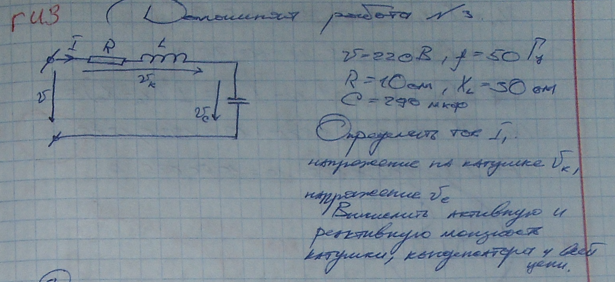 ГИЗ
Домашняя работа №3
I R L
U=220В, f=50 Гц
Uк
R=10 ом, XL=30 ом
U
Uc
C=290 мкф
Определить ток I,
напряжение на катушке Uк,
напряжение Uc
Вычислить активную и
реактивную мощность
катушки, конденсатора и всей
цепи.